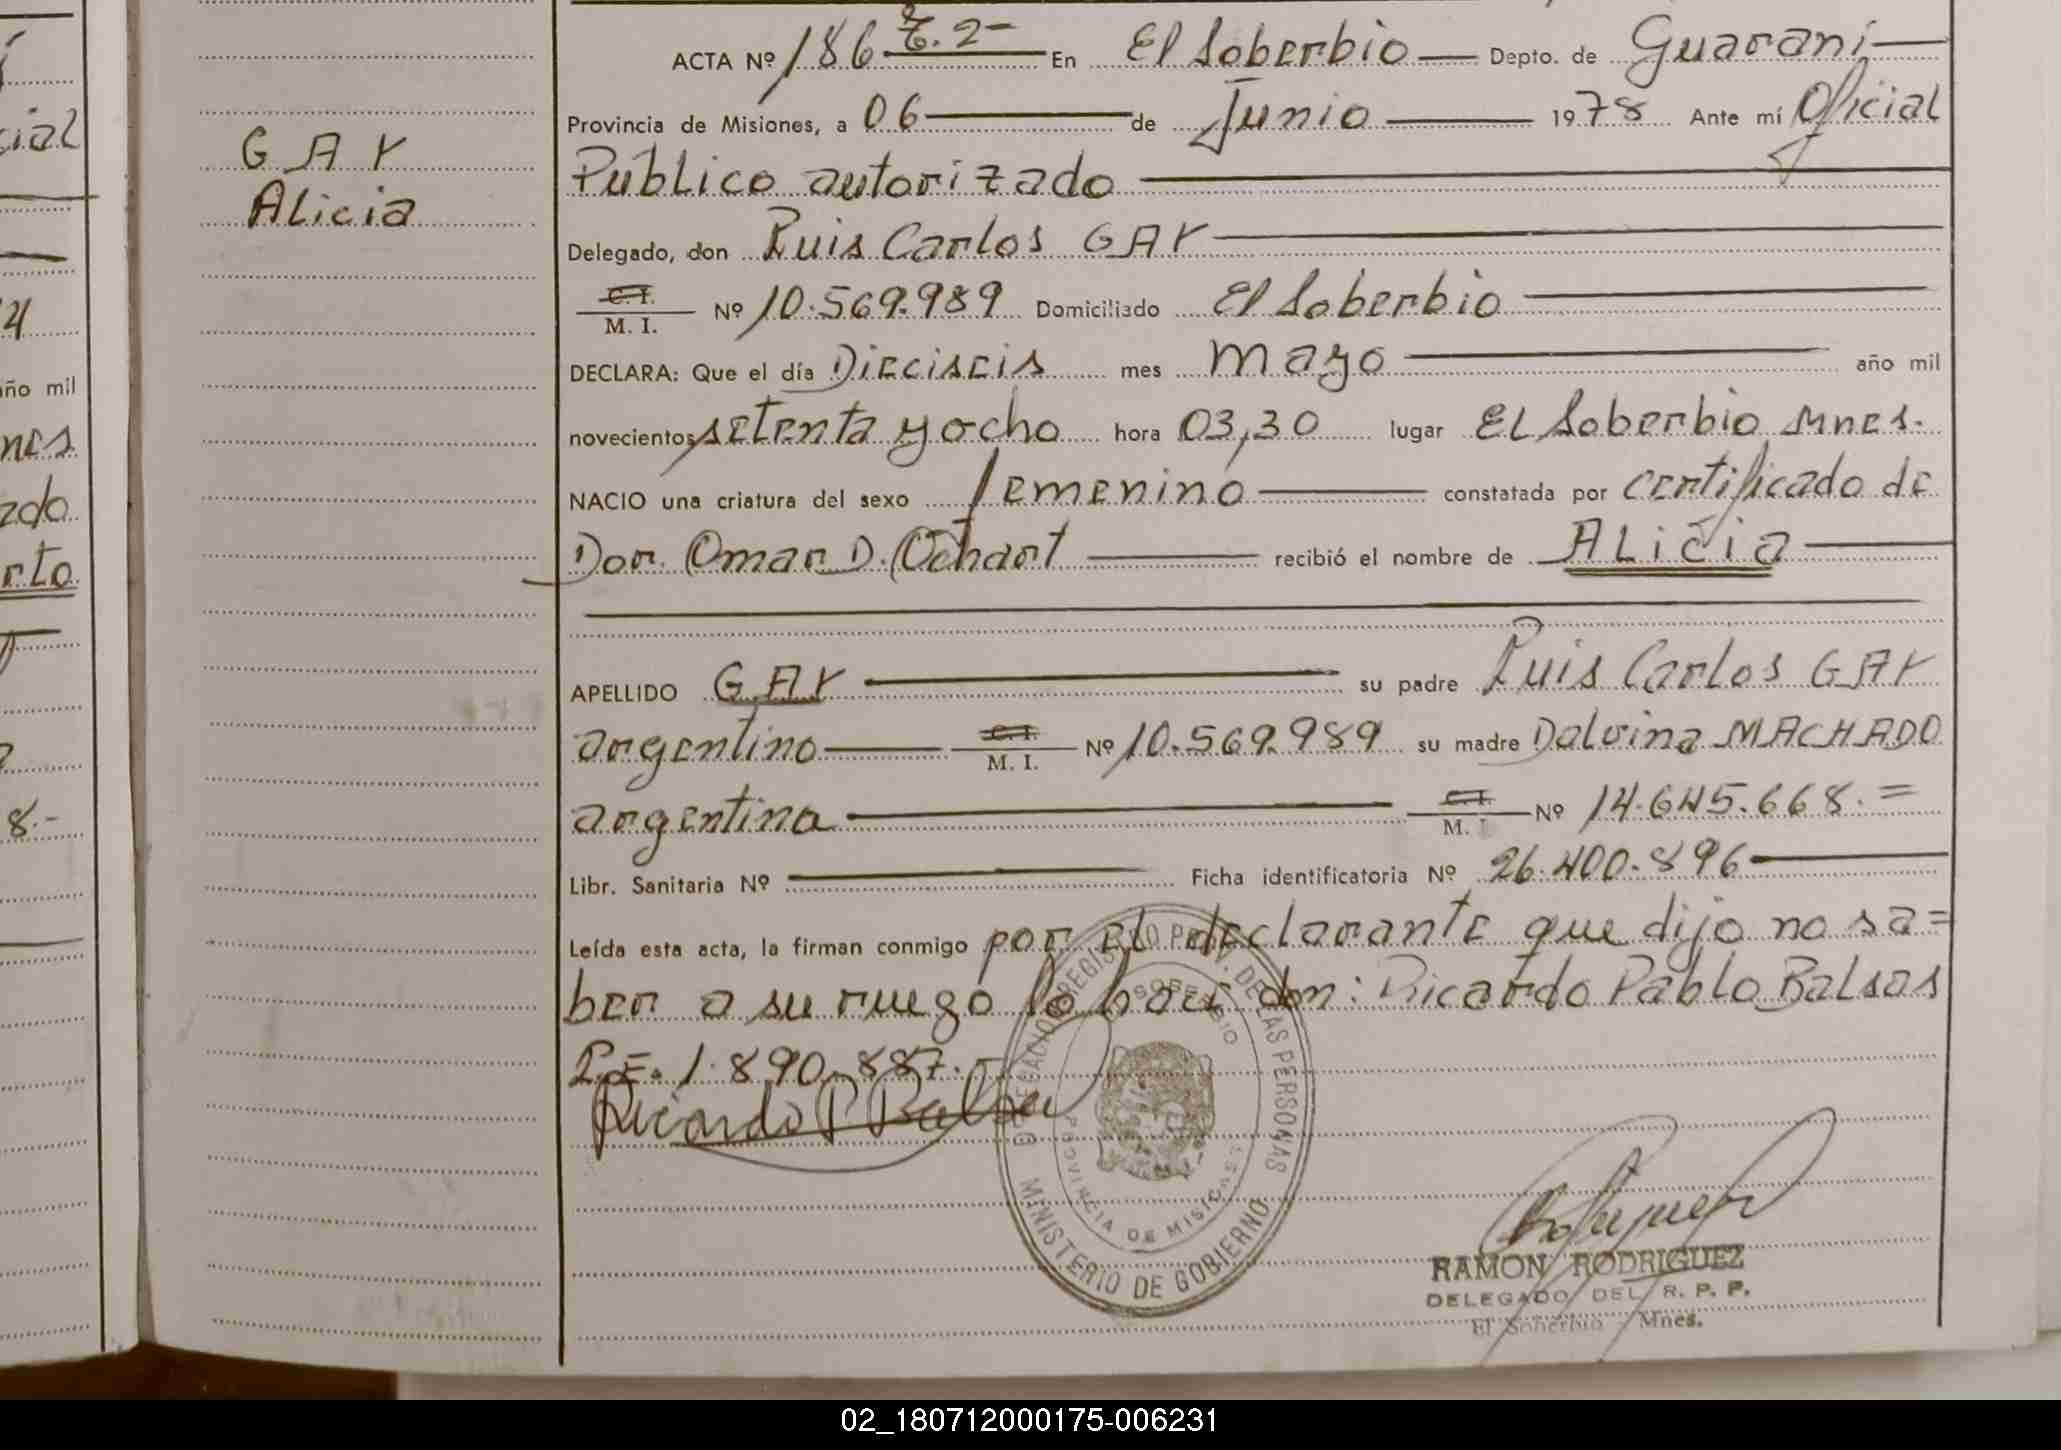 ACTA Nº 186 T. 2- En El Soberbio Depto. de Guaraní
Provincia de Misiones, a 06 de Junio 1978 Ante mí Oficial
Público autorizado
Delegado, don Luis Carlos GAY
C. I.
M. I. Nº 10.569.989 Domiciliado El Soberbio
DECLARA: Que el día Dieciseis mes Mayo año mil
novecientos setenta y ocho hora 03,30 lugar El Soberbio Mnes.
NACIO una criatura del sexo femenino constatada por certificado de
Dor. Omar D. Ochart recibió el nombre de ALicia
APELLIDO GAY su padre Luis Carlos GAY
argentino C. I. M. I. Nº 10.569.989 su madre Dalvina MACHADO
argentina C. I. M. I. Nº 14.645.668.=
Libr. Sanitaria Nº Ficha identificatoria Nº 26.400.896
Leída esta acta, la firman conmigo por el declarante que dijo no sa=
ber a su ruego lo hace don: Ricardo Pablo Balsas
L.E. 1.890.887.-
Ricardo P Balsa
DELEGACION REGISTRO PROV. DE LAS PERSONAS
EL SOBERBIO
PROVINCIA DE MISIONES
MINISTERIO DE GOBIERNO
RAMON RODRIGUEZ
DELEGADO DEL R. P. P.
El Soberbio Mnes.
GAY
Alicia
cial
4
año mil
nes
zado
rto
8.-
02_180712000175-006231